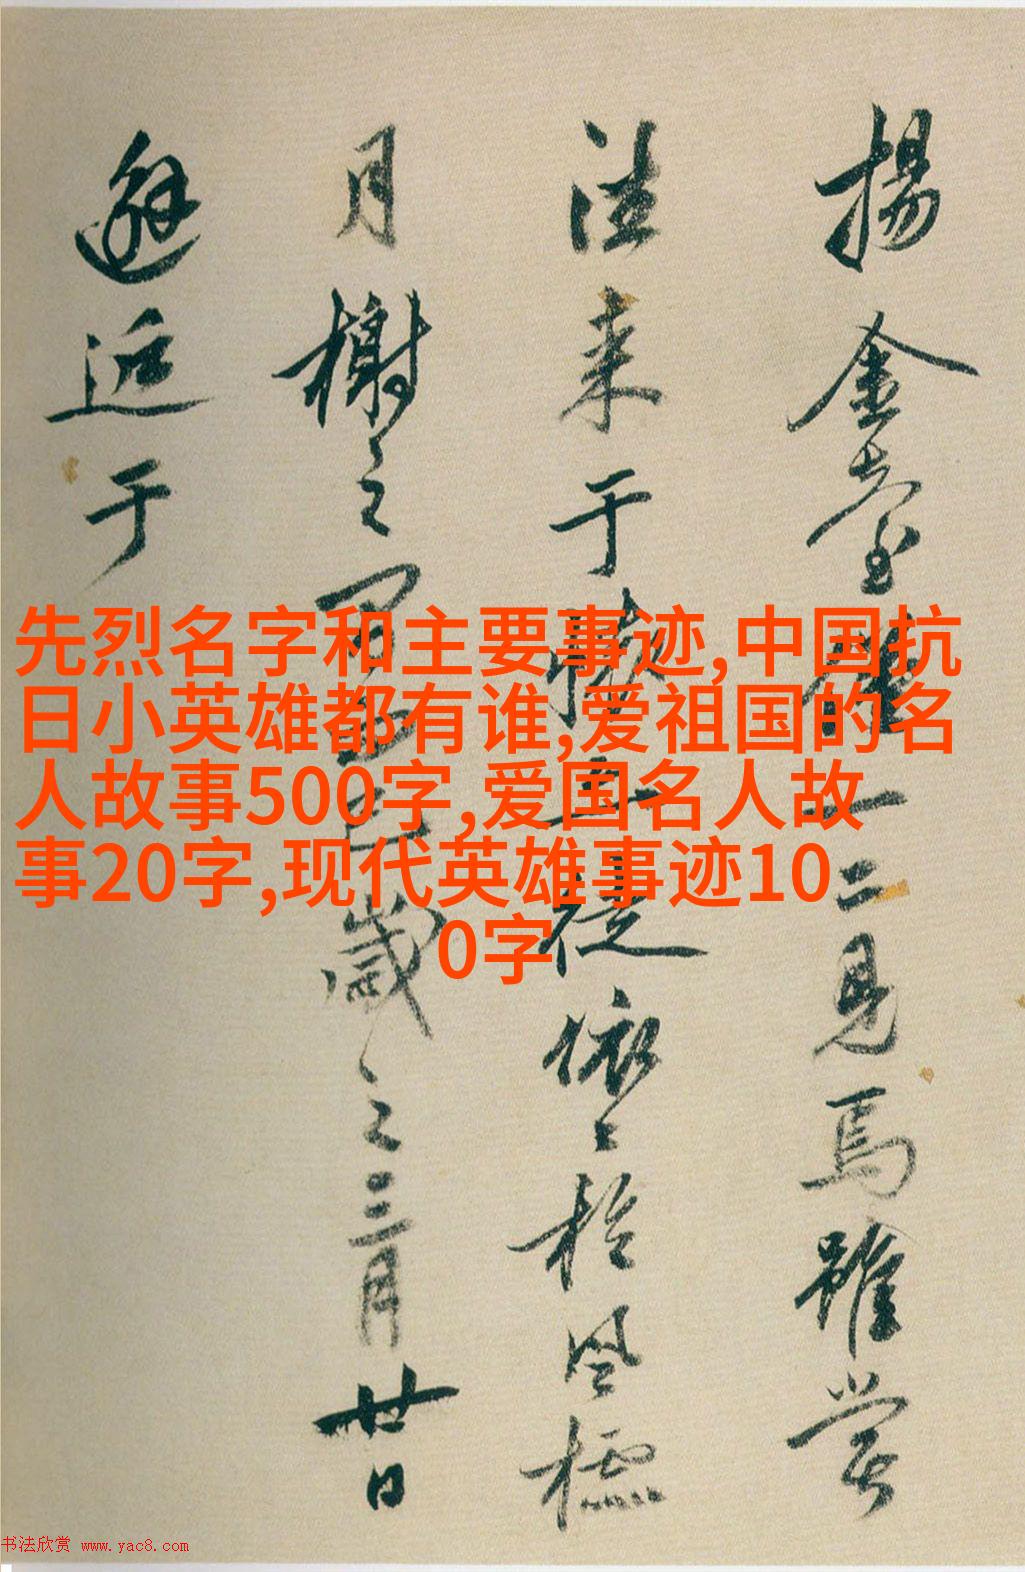 揚金臺
二見焉雖嘗
往来于
徒依〻於風標
月榭之
歲之三月廿日
邂逅于
先烈名字和主要事迹,中国抗
日小英雄都有谁,爱祖国的名
人故事500字,爱国名人故
事20字,现代英雄事迹10
0字
书法欣赏 www.yac8.com